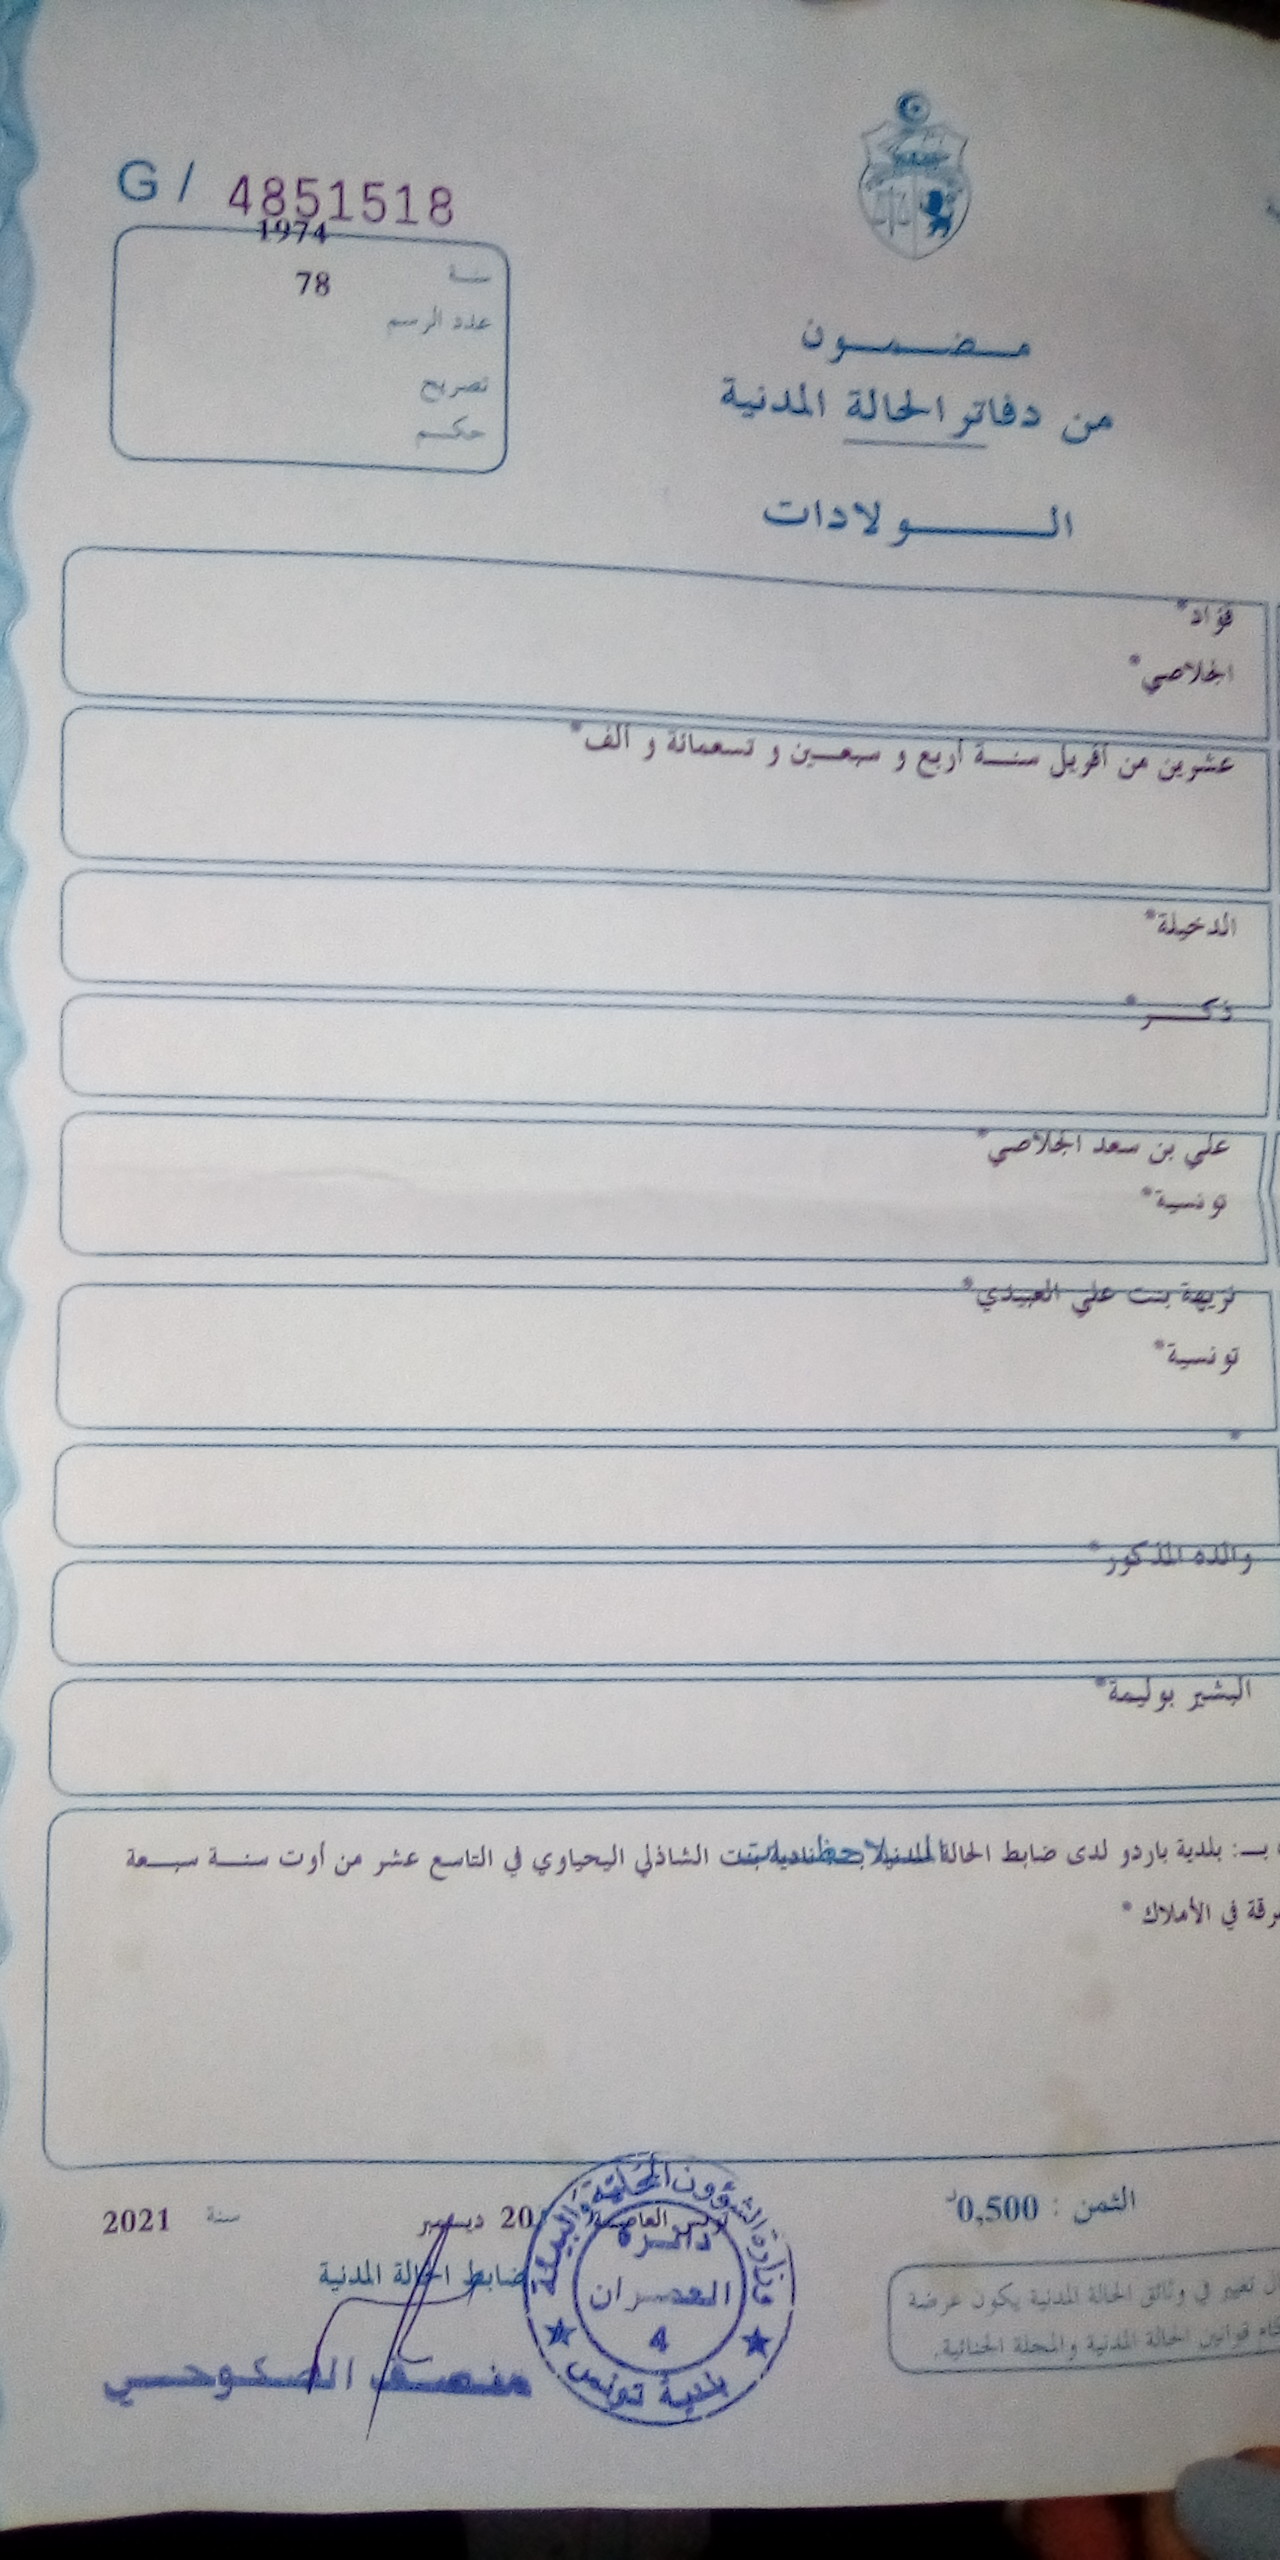 G / 4851518
1974
سنة
78
عدد الرسم
تصريح
حكم
مضمون
من دفاتر الحالة المدنية
الولادات
فؤاد*
الجلاصي*
عشرين من أفريل سنة أربع و سبعين و تسعمائة و ألف*
الدخيلة*
ذكر*
علي بن سعد الجلاصي*
تونسية*
نزيهة بنت علي العبيدي*
تونسية*
*
والده المذكور*
البشير بوليمة*
بـ: بلدية باردو لدى ضابط الحالة المدنية بنت الشاذلي اليحياوي في التاسع عشر من أوت سنة سبعة
في الأملاك *
الثمن : 0,500د
تونس العاصمة 20 ديسمبر سنة 2021
ضابط الحالة المدنية
وزارة الشؤون المحلية والبيئة
دائرة
العمران
4
بلدية تونس
تغيير في وثائق الحالة المدنية يكون عرضة
قوانين الحالة المدنية والمجلة الجنائية.